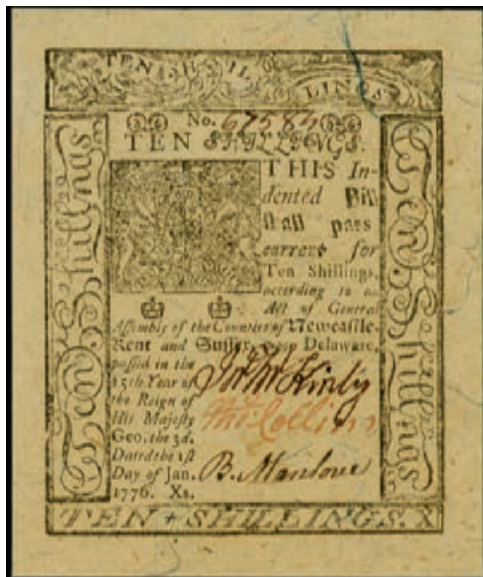 TEN SHILLINGS
No. 67584
TEN SHILLINGS.
THIS In-
dented Bill
shall pass
current for
Ten Shillings,
according to an
Act of General
Assembly of the Counties of Newcastle,
Kent and Sussex, upon Delaware,
passed in the
15th Year of
the Reign of
His Majesty
Geo. the 3d.
Dated the 1st
Day of Jan.
1776. Xs.
Jn McKinly
Thos Collins
B. Manlove
Ten Shillings
Ten Shillings
TEN SHILLINGS. X